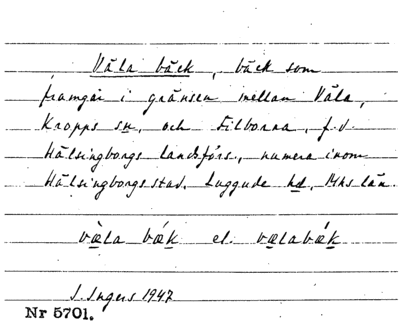 Väla bäck, bäck som
framgår i gränsen mellan Väla,
Kropps sn, och Filborna, f.d.
Hälsingborgs landsförs., numera inom
Hälsingborgs stad. Luggude hd, Mhs län.
væ̀la bǽk el. vælabǽk
I. Ingers 1947
Nr 5701.